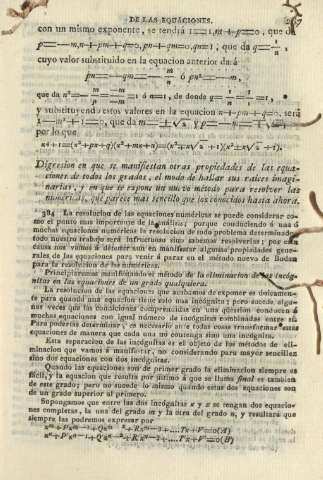 DE LAS EQUACIONES.
con un mismo exponente, se tendrá 1=1, m+p=0, que da
p=-m, n+pm+q=0, pn+qm=0, qn=1, que da q=1/n,
cuyo valor substituido en la equacion anterior dará
pn=-qm=-m/n ó pn²=-m,
que da n²= ó n=1, de donde q=1/n=1,
y substituyendo estos valores en la equacion n+pm+q=0, será
que da
por lo que
Digresion en que se manifiestan otras propiedades de las equa-
ciones de todos los grados, el modo de hallar sus raices imagi-
narias, y en que se expone un nuevo método para resolver las
numéricas, que parece mas sencillo que los conocidos hasta ahora.
384 La resolucion de las equaciones numéricas se puede considerar co-
mo el punto mas importante de la análisis; porque conduciendo á una ó
muchas equaciones numéricas la resolucion de todo problema determinado,
todo nuestro trabajo será infructuoso sino sabemos resolverlas; por esta
causa nos vamos á detener aun en manifestar algunas propiedades gene-
rales de las equaciones para venir á parar en el método nuevo de Budan
para la resolucion de las numéricas.
Principiaremos manifestando el método de la eliminacion de las incóg-
nitas en las equaciones de un grado qualquiera.
La resolucion de las equaciones que acabamos de exponer es
para quando una equacion tiene solo una incógnita; pero sucede algu-
nas veces que las condiciones comprendidas en una qüestion conducen á
muchas equaciones con igual número de incógnitas combinadas entre sí.
Para poderlas determinar, es necesario ante todas cosas transformar estas
equaciones de manera que cada una no contenga sino una incógnita.
Esta separacion de las incógnitas es el objeto de los métodos de eli-
minacion que vamos á manifestar, no considerando para mayor sencillez
sino dos equaciones con dos incógnitas.
Quando las equaciones son de primer grado la eliminacion siempre es
fácil, y la equacion que resulta por último ó que se llama final es tambien
de este grado; pero no sucede lo mismo quando estas dos equaciones son
de un grado superior al primero.
Supongamos que entre las dos incógnitas x y z se tengan dos equacio-
nes completas, la una del grado m y la otra del grado n, y resultará que
siempre las podremos expresar por
xᵐ+Pxᵐ⁻¹+Qxᵐ⁻²+Rxᵐ⁻³+....Tx+V=0(A)
xⁿ+P'xⁿ⁻¹+Q'xⁿ⁻²+R'xⁿ⁻³+....T'x+V'=0(B)